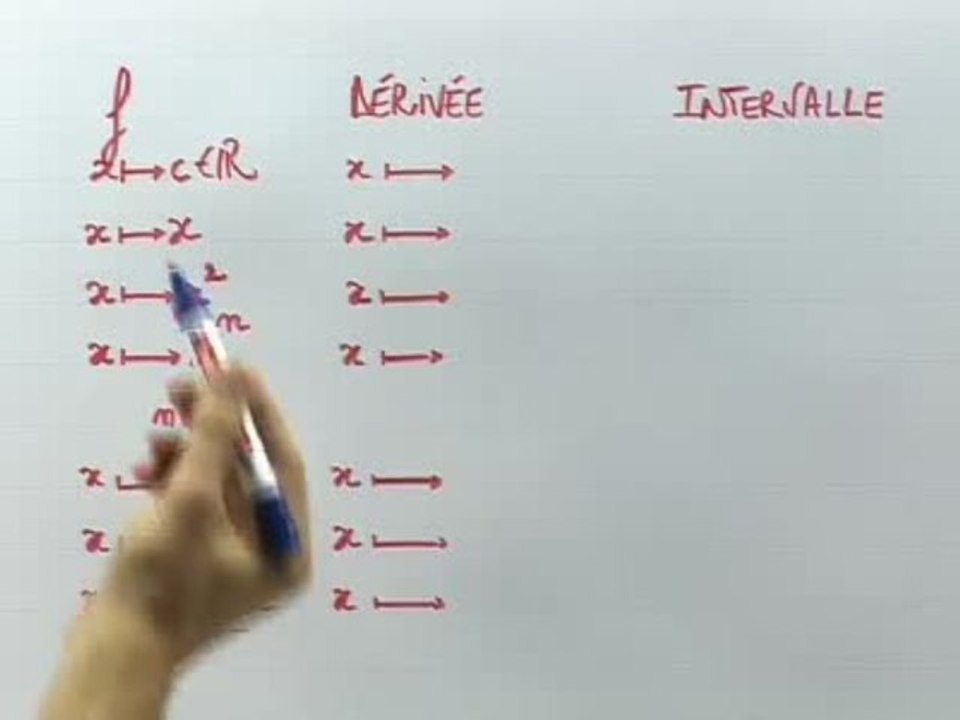 f DÉRIVÉE INTERVALLE
x ↦ c ∈ ℝ x ↦
x ↦ x x ↦
x ↦ 2 x ↦
x ↦ n x ↦
n
x ↦ x ↦
x x ↦
x ↦